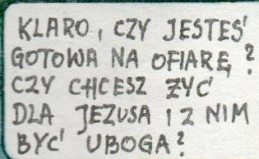 KLARO, CZY JESTEŚ
GOTOWA NA OFIARĘ?
CZY CHCESZ ŻYĆ
DLA JEZUSA I Z NIM
BYĆ UBOGA?